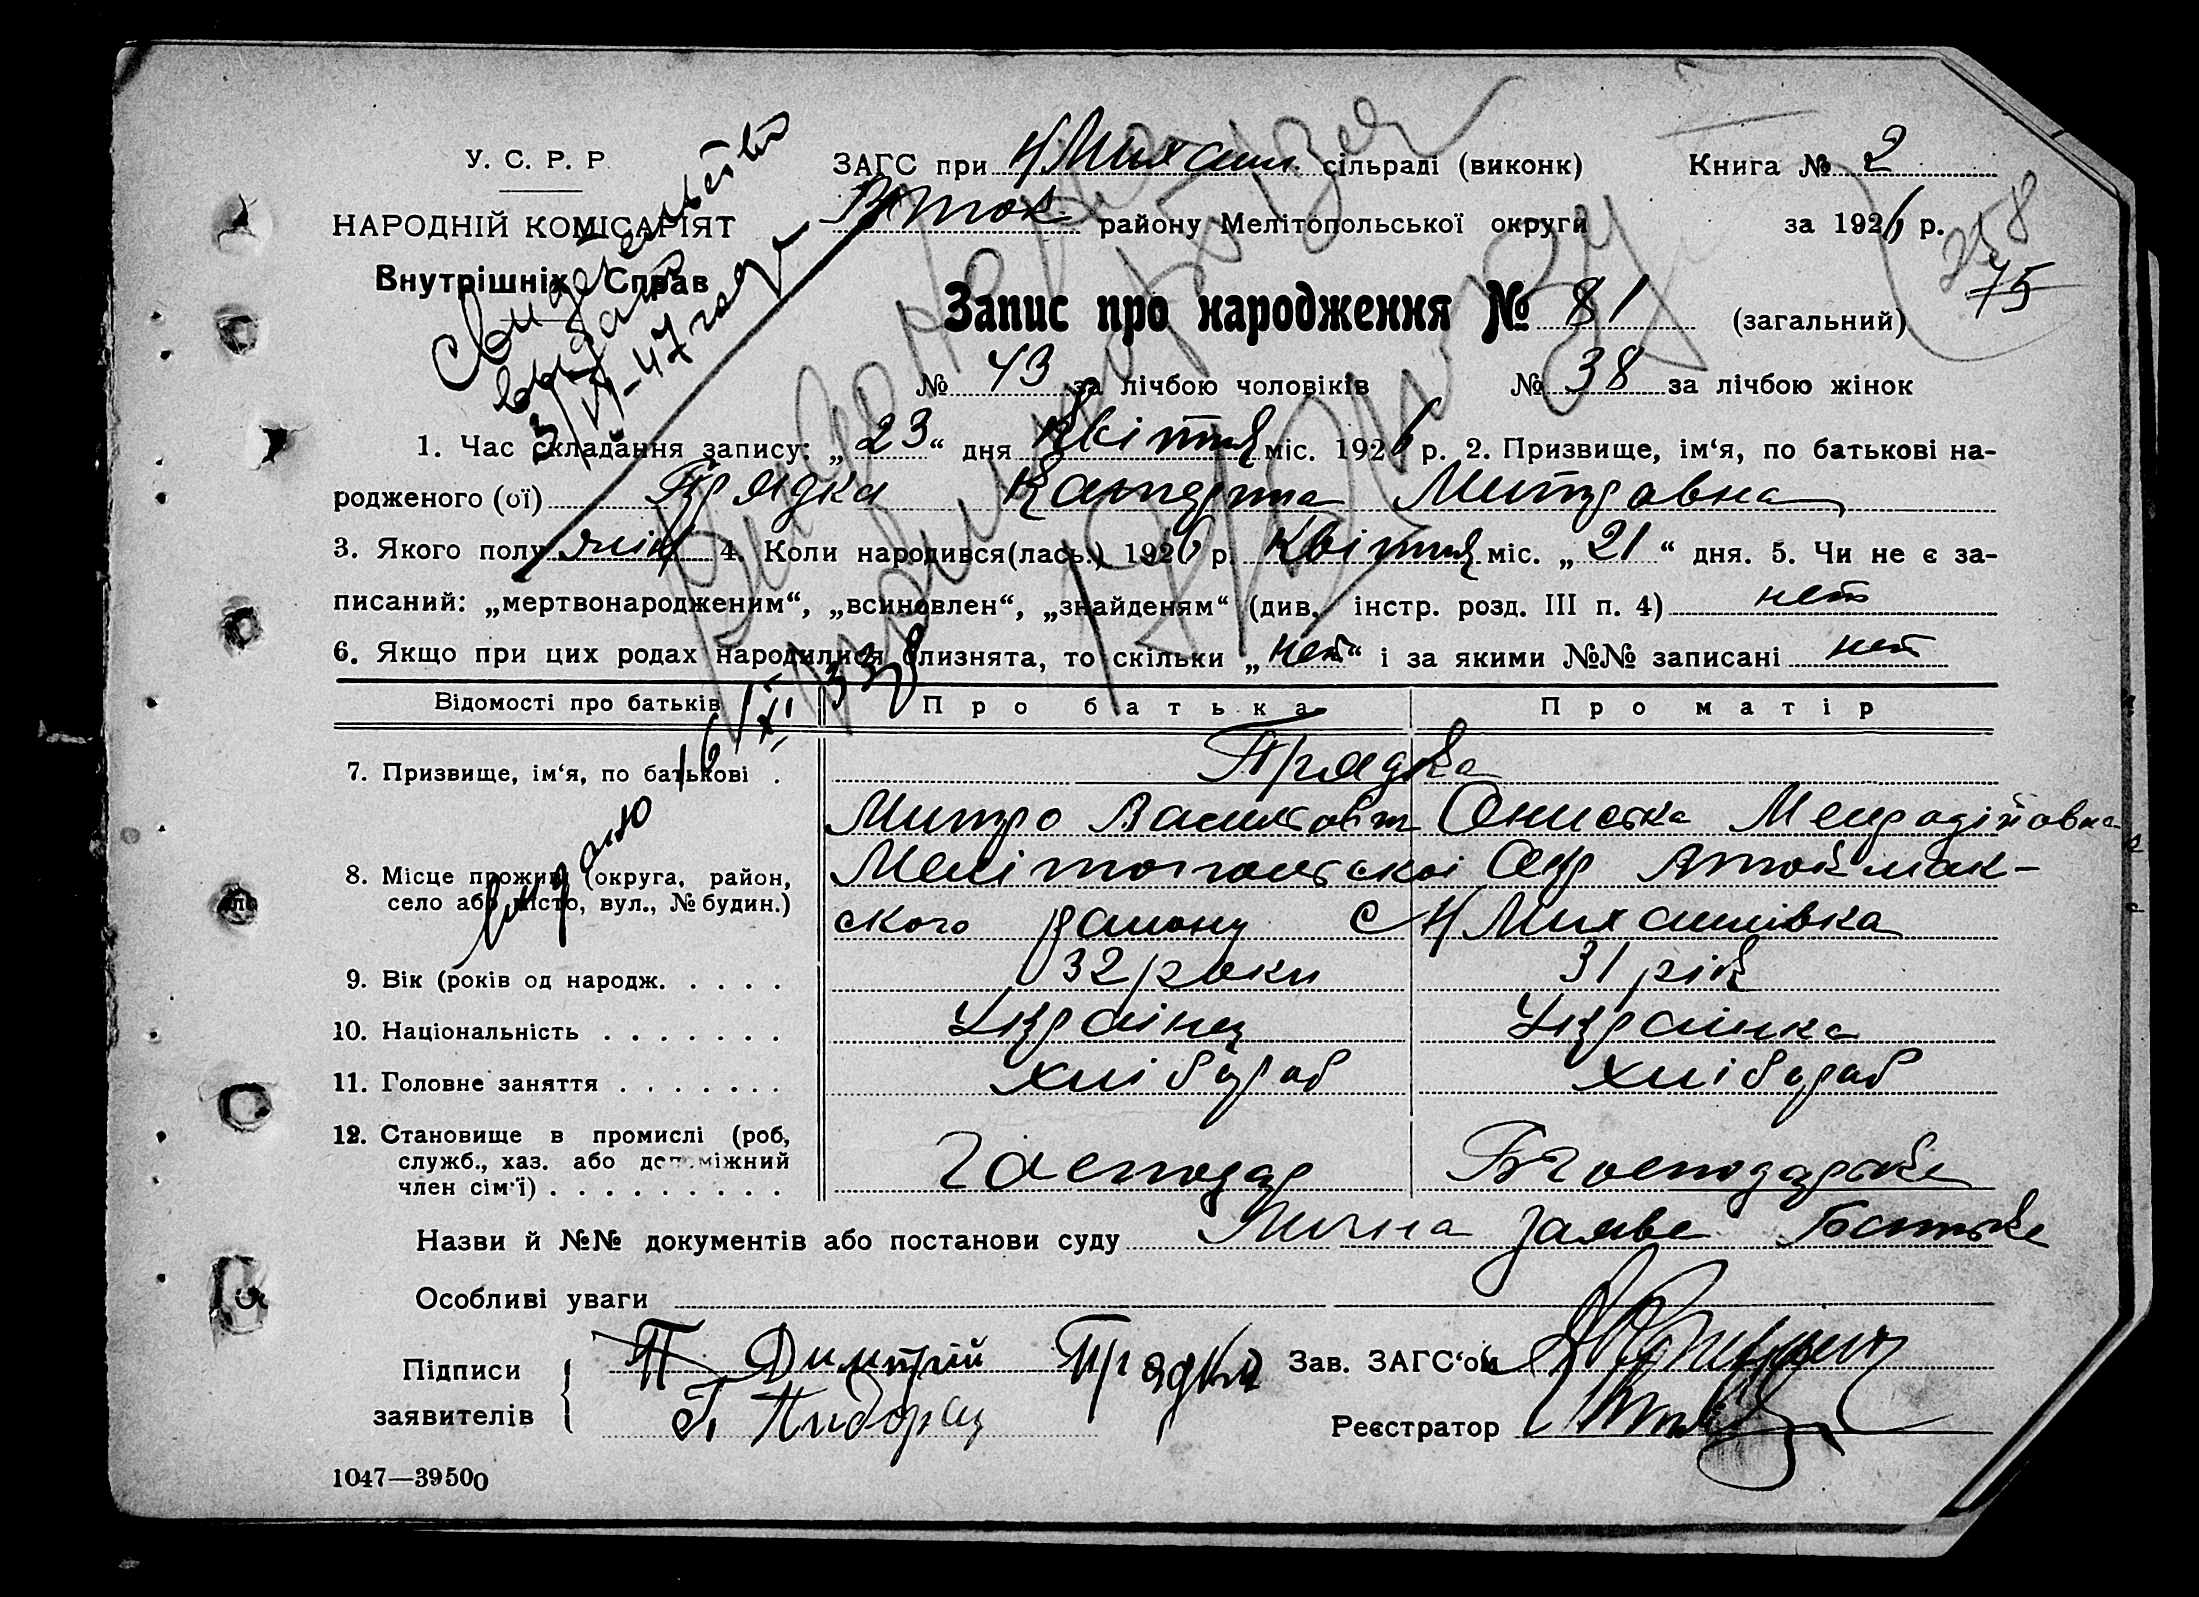 У. С. Р. Р.
НАРОДНІЙ КОМІСАРІЯТ
Внутрішніх Справ
Свидетельство
выдано
3/VI-47 года
ЗАГС при Н Михайл. сільраді (виконк)
району Мелітопольської округи
Книга № 2
за 1926 р.
258
75
Запис про народження № 81 (загальний)
№ 43 за лічбою чоловіків № 38 за лічбою жінок
1. Час складання запису: „23“ дня Квітня міс. 1926 р. 2. Призвище, ім‘я, по батькові на-
родженого (ої) Прядка Катерина Митровна
3. Якого полу жін 4. Коли народився(лась.) 1926 р. Квітня міс. „21“ дня. 5. Чи не є за-
писаний: „мертвонародженим“, „всиновлен“, „знайденям“ (див. інстр. розд. III п. 4) нет
6. Якщо при цих родах народилися близнята, то скільки „нет“ і за якими №№ записані нет
Відомості про батьків Про батька Про матір
16/XI 33
видано
7. Призвище, ім‘я, по батькові . Прядка
Митро Васильович Онистка
8. Місце прожив. (округа, район, Мелітопольскоі Окр
село або місто, вул., № будин.) ского району с Н Михайлівка
9. Вік (років од народж. . . . . 32 роки 31 рік
10. Національність . . . . . . . Українец Українка
11. Головне заняття . . . . . . . Хлібороб Хлібороб
12. Становище в промислі (роб,
служб., хаз. або допоміжний Господар
член сім‘ї) . . . . . . . . .
Назви й №№ документів або постанови суду Лична заява Батька
Особливі уваги
Підписи П Димитрій Прядка Зав. ЗАГС‘ом
заявителів Реєстратор
1047—39500